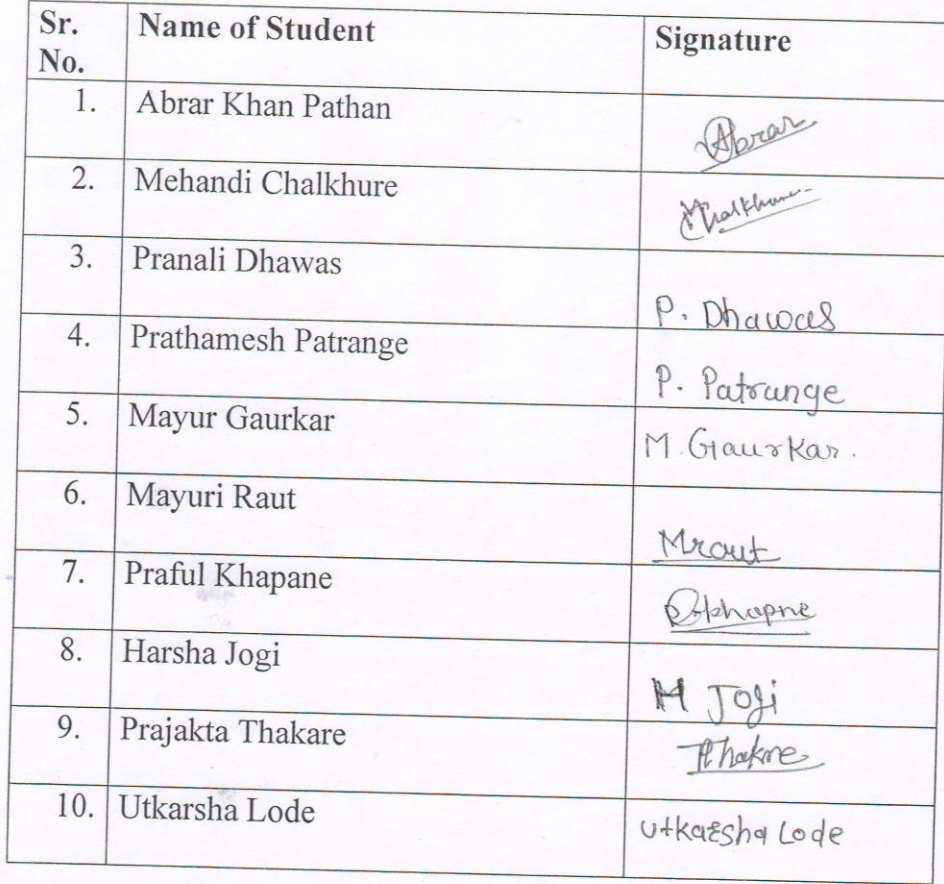 Sr. No. Name of Student Signature
1. Abrar Khan Pathan Abrar
2. Mehandi Chalkhure
3. Pranali Dhawas P. Dhawas
4. Prathamesh Patrange P. Patrange
5. Mayur Gaurkar M. Gaurkar.
6. Mayuri Raut Mraut
7. Praful Khapane Pkhapne
8. Harsha Jogi H Jogi
9. Prajakta Thakare
10. Utkarsha Lode Utkarsha Lode